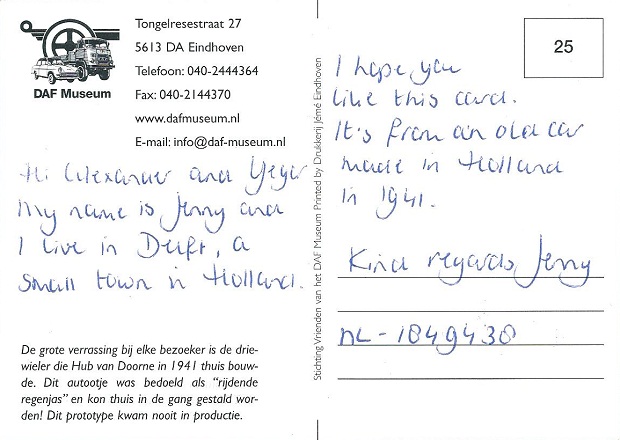 DAF Museum
Tongelresestraat 27
5613 DA Eindhoven
Telefoon: 040-2444364
Fax: 040-2144370
www.dafmuseum.nl
E-mail: info@daf-museum.nl
Hi Alexander and Yegor
My name is Jenny and
I live in Delft, a
small town in Holland.
De grote verrassing bij elke bezoeker is de drie-
wieler die Hub van Doorne in 1941 thuis bouw-
de. Dit autootje was bedoeld als “rijdende
regenjas” en kon thuis in de gang gestald wor-
den! Dit prototype kwam nooit in productie.
Stichting Vrienden van het DAF Museum Printed by Drukkerij Jémé Eindhoven
25
I hope you
like this card.
It's from an old car
made in Holland
in 1941.
Kind regards, Jenny
NL-1849438